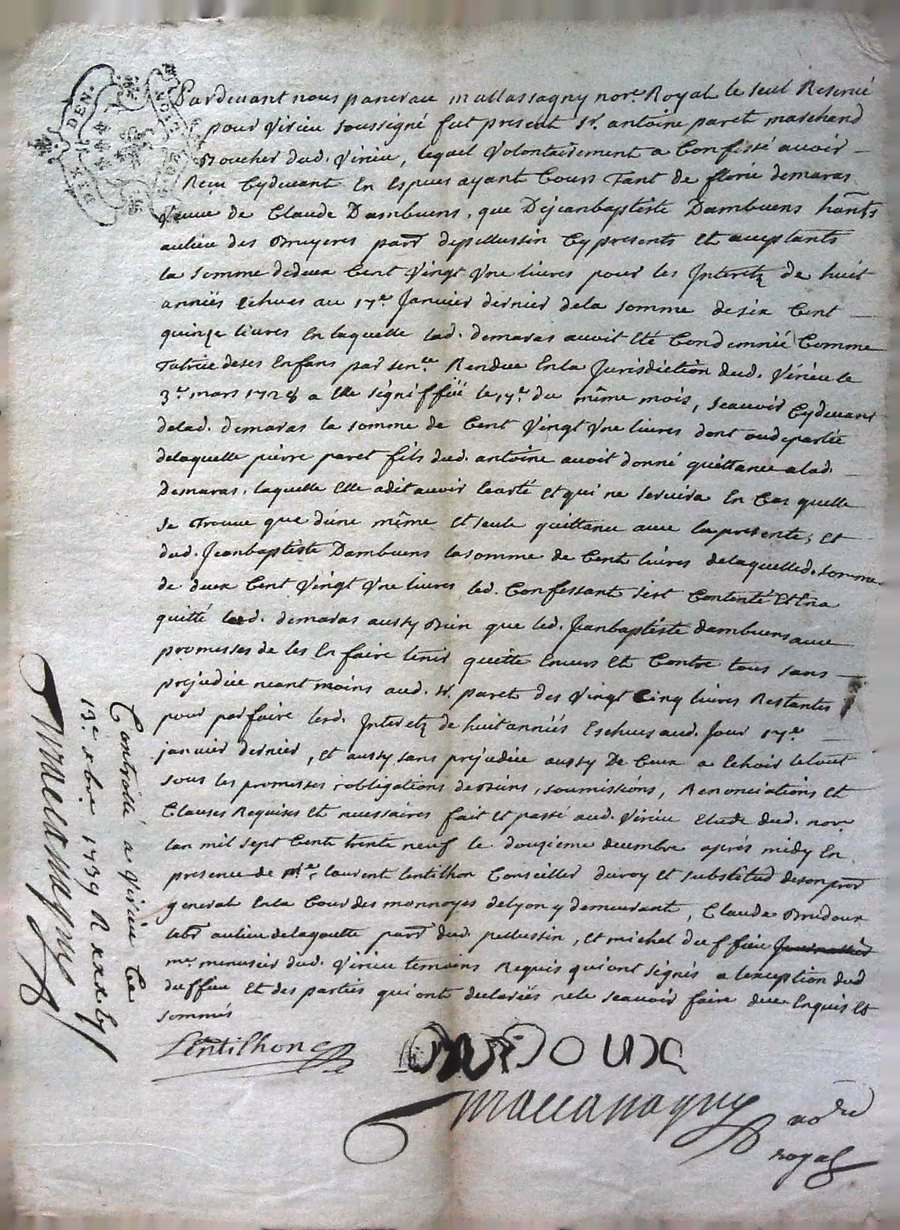 Pardevant nous pancrace mallassagny nore. Royal le seul Reservé
pour virieu soussigné fut present sr. antoine paret marchand
Boucher dud. virieu, lequel volontairement a Confessé avoir
Receu Cydevant En Especes ayant Cours Tant de florie demaras
veuve de Claude Dambuens, que De jeanbaptiste Dambuens hants
aulieu des Bruyeres parr depellussin Cy presents Et acceptants
la somme dedeux Cent vingt vne livres pour les Interetz de huit
anneés echues au 17e. Janvier dernier dela somme de six Cent
quinze livres En laquelle lad. demaras avoit Eté Condemneé Comme
Tutrice de ses Enfans par sence. Rendue En la Jurisdiction dud. Virieu le
3e. mars 1728 a Elle signiffieé le 17e. du même mois, scavoir Cydevant
delad. demaras la somme de Cent vingt vne livres dont ou de partie
delaquelle pierre paret fils dud. antoine avoit donné quittance a lad.
demaras, laquelle Elle a dit avoir Ecarté Et qui ne servira En Cas quelle
se Trouve que dúne même Et seule quittance avec la presente, Et
dud. Jeanbaptiste Dambuens la somme de Cent livres delaquelled. somme
de deux Cent vingt vne livres led. Confessant s'est Contenté Et En a
quitté lad. demaras aussy Bien que led. Jeanbaptiste dambuens avec
promesses de les En faire tenir quitte Envers Et Contre tous sans
prejudice neant moins aud. sr. paret des vingt Cinq livres Restantes
pour parfaire lesd. Interetz de huit anneés Eschues aud. Jour 17e.
janvier dernier, Et aussy sans prejudice aussy De Ceux a Echoir le tout
sous les promesses obligations de Biens, soumissions, Renonciations Et
Clauses Requises Et necessaires fait Et passé aud. virieu Etude dud. nore
lan mil sept Cent trente neuf le douzieme decembre après midy En
presence de Me. laurent lentilhon Conseiller du roy Et substitud de son procr
general En la Cour des monnoyes de lyon y demeurant, Claude Bridoux
labr aulieu delagoutte parr dud. pellussin, Et michel duffieu
me. menusier dud. virieu temoins Requis qui ont signés a lexception dud
duffieu Et des parties qui ont declareés ne le scavoir faire de ce Enquis Et
sommés
Lentilhon
BRIDOUX
Maccanagny nore
royal
Controllé a virieu Le
13e. xbre 1739